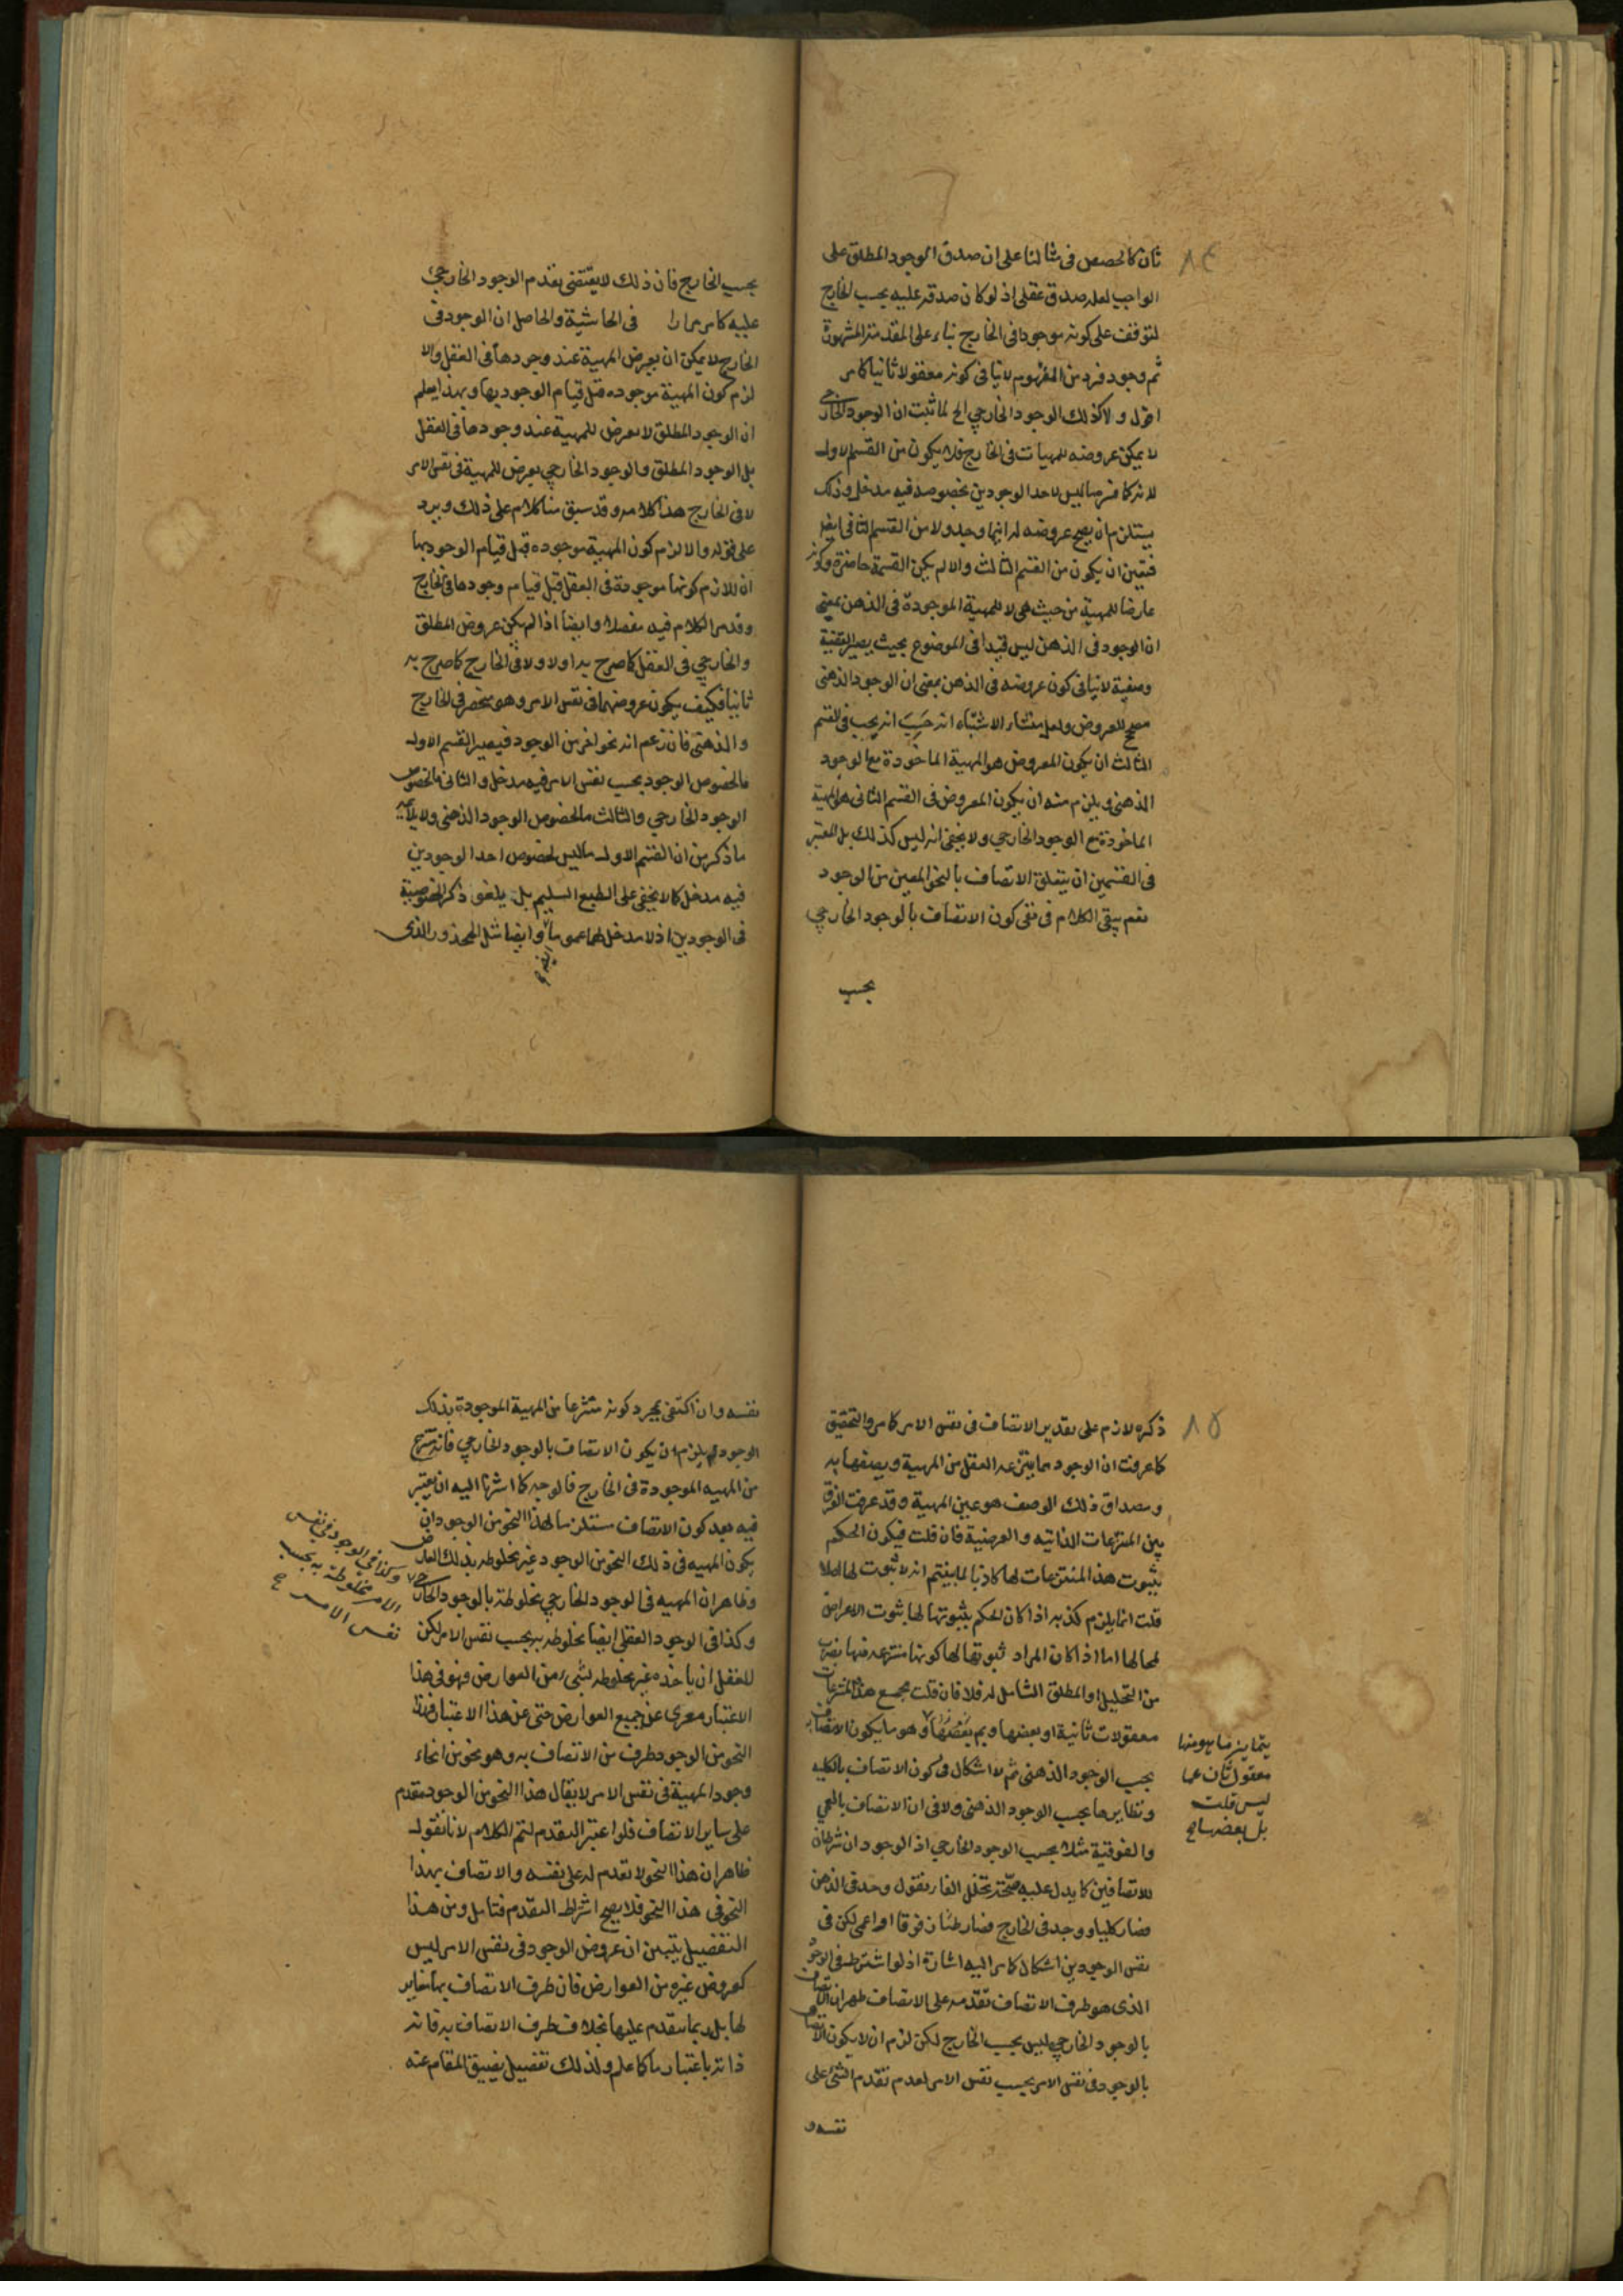 ٨٤
ثان كالحصص فى مثالنا على ان صدق الموجود المطلق على
الواجب لعله صدق عقلى اذ لو كان صدقه عليه بحسب الخارج
لتوقف على كونه موجودا فى الخارج بناء على المقدمة المشهورة
ثم وجود فرد من المفهوم لا ينافى كونه معقولا ثانيا كما مر
اقول ولا كذلك الوجود الخارجي الخ لما ثبت ان الوجود الخارجى
لا يمكن عروضه للمهيات فى الخارج فلا يكون من القسم الاول
لانه كما فسر ما ليس لاحد الوجودين بخصوصه فيه مدخل وذلك
يستلزم ان يصح عروضه له ايتها وجد ولا من القسم الثانى ايضا
فتعين ان يكون من القسم الثالث والا لم يكن القسمة حاضرة وكونه
عارضا للمهية من حيث هى لا للمهية الموجودة فى الذهن بمعنى
ان الوجود فى الذهن ليس قيدا فى الموضوع بحيث يصير القضية
وصفية لا ينافى كون عروضه فى الذهن بمعنى ان الوجود الذهنى
مصحح للعروض ولعل منشاء الاشتباه انه حسب انه يجب فى القسم
الثالث ان يكون المعروض هو المهية الماخوذة مع الوجود
الذهنى ويلزم منه ان يكون المعروض فى القسم الثانى هو المهية
الماخوذة مع الوجود الخارجي ولا يخفى انه ليس كذلك بل المعتبر
فى القسمين ان يتعلق الاتصاف بالنحو المعين من الوجود
نعم يبقى الكلام فى نفى كون الاتصاف بالوجود الخارجي
بحسب
بحسب الخارج فان ذلك لا يقتضى تقدم الوجود الخارجى
عليه كما مر مرارا فى الحاشية والحاصل ان الموجود فى
الخارج لا يمكن ان يعرض المهية عند وجودها فى العقل والا
لزم كون المهية موجوده قبل قيام الوجود بها وبهذا يعلم
ان الوجود المطلق لا يعرض للمهية عند وجودها فى العقل
بل الوجود المطلق والوجود الخارجي يعرض للمهية فى نفس الامر
لا فى الخارج هذا كلامه وقد سبق منا كلام على ذلك ويرد
على قوله والا لزم كون المهية موجوده قبل قيام الوجود بها
ان اللازم كونها موجودة فى العقل قبل قيام وجودها فى الخارج
وقد مر الكلام فيه مفصلا وايضا اذا لم يكن عروض المطلق
والخارجي فى العقل كما صرح به اولا ولا فى الخارج كما صرح به
ثانيا فكيف يكون عروضهما فى نفس الامر وهو منحصر فى الخارج
والذهنى فان زعم انه نحو اخر من الوجود فيصير القسم الاول
ما لخصوص الوجود بحسب نفس الامر فيه مدخل والثانى ما لخصوص
الوجود الخارجي والثالث ما لخصوص الوجود الذهنى ولا يلايمه
ما ذكر من ان القسم الاول ما ليس لخصوص احد الوجودين
فيه مدخل كما لا يخفى على الطبع السليم بل يلغو ذكر الخصوصية
فى الوجودين اذ لا مدخل لهما عموما وايضا مثل المحذور الذى
٨٥
ذكره لازم على تقدير الاتصاف فى نفس الامر كما مر والتحقيق
كما عرفت ان الوجود مما ينتزعه العقل من المهية ويصفها به
ومصداق ذلك الوصف هو عين المهية وقد عرفت الفرق
بين المنتزعات الذاتيه والعرضية فان قلت فيكون الحكم
بثبوت هذا المنتزعات لها كاذبا لما بينتم انه لا ثبوت لها اصلا
قلت انما يلزم كذبه اذا كان الحكم بثبوتها لها ثبوت الاعراض
لمحالها اما اذا كان المراد ثبوتها لها كونها منتزعة منها بضرب
من التحليل او المطلق الشامل له فلا فان قلت مجمع هذا المنتزعات
معقولات ثانية او بعضها وبم بعضها وهو ما يكون الاتصاف به
بحسب الوجود الذهنى ثم لا اشكال فى كون الاتصاف بالكليه
ونظايرها بحسب الوجود الذهنى ولا فى ان الاتصاف بالعمى
والفوقية مثلا بحسب الوجود الخارجي اذ الوجود ان شرطان
للاتصافين كما يدل عليه صحة تخلل الفا فنقول وجد فى الذهن
فصار كليا ووجد فى الخارج فصار فوقا او اعمى لكن فى
نفس الوجودين اشكال كما مر اليه اشارة اذ لو اشترط فى الوجود
الذى هو ظرف الاتصاف تقدمه على الاتصاف ظهر ان الاتصاف
بالوجود الخارجى ليس بحسب الخارج لكن لزم ان لا يكون الاتصاف
بالوجود فى نفس الامر بحسب نفس الامر لعدم تقدم الشئ على
نفسه و
يتمايز ما هو منها
معقول ثان عما
ليس قلت
بل بعضها
نفسه وان اكتفى بمجرد كونه منتزعا من المهية الموجودة بذلك
الوجود يلزم ان يكون الاتصاف بالوجود الخارجي فانه منتزع
من المهيه الموجودة فى الخارج فالوجه كما اشرنا اليه ان يعتبر
فيه بعد كون الاتصاف مستلزما لهذا النحو من الوجود ان
يكون المهيه فى ذلك النحو من الوجود غير مخلوطه بذلك العارض
وظاهر ان المهيه فى الوجود الخارجي مخلوطة بالوجود الخارجى
وكذا فى الوجود العقلى ايضا مخلوطه به بحسب نفس الامر لكن
للعقل ان ياخذه غير مخلوطه بشىء من العوارض فهو فى هذا
الاعتبار معرى عن جميع العوارض حتى عن هذا الاعتبار فهذا
النحو من الوجود ظرف من الاتصاف به وهو نحو من انحاء
وجود المهية فى نفس الامر لا يقال هذا النحو من الوجود متقدم
على ساير الاتصاف فلو اعتبر التقدم لتم الكلام لانا نقول
ظاهر ان هذا النحو لا تقدم له على نفسه والاتصاف بهذا
النحو فى هذا النحو فلا يصح اشتراط التقدم فتامل ومن هذا
التفصيل يتبين ان عروض الوجود فى نفس الامر ليس
كعروض غيره من العوارض فان ظرف الاتصاف بها مغاير
لها بل ربما يتقدم عليها بخلاف ظرف الاتصاف به فانه
ذاته باعتبار ما كما علم ولذلك تفصيل يضيق المقام عنه
وكذا فى الوجود فى نفس
الامر مخلوطة به بحسب
نفس الامر